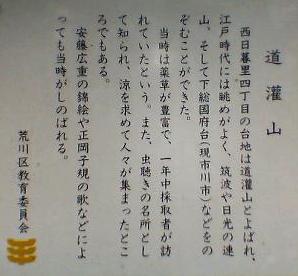 道灌山
西日暮里四丁目の台地は道灌山とよばれ、
江戸時代には眺めがよく、筑波や日光の連
山、そして下総国府台(現市川市)などをの
ぞむことができた。
当時は薬草が豊富で、一年中採取者が訪
れていたという。また、虫聴きの名所とし
て知られ、涼を求めて人々が集まったとこ
ろでもある。
安藤広重の錦絵や正岡子規の歌などによ
っても当時がしのばれる。
荒川区教育委員会